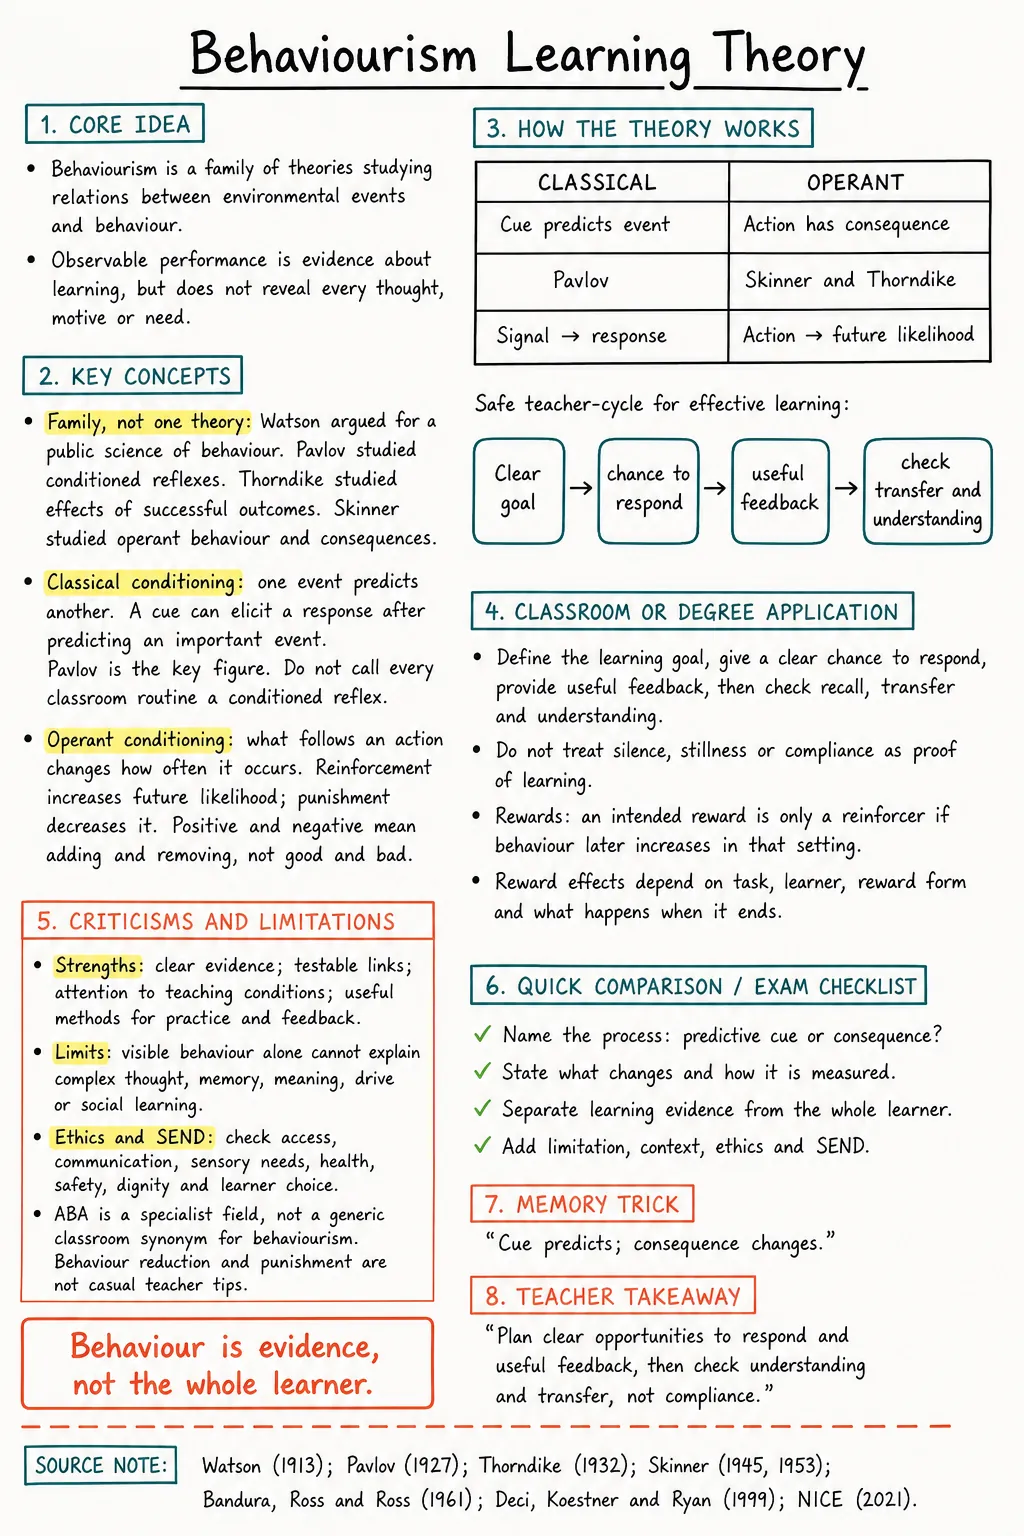 Behaviourism Learning Theory
1. CORE IDEA
• Behaviourism is a family of theories studying
relations between environmental events
and behaviour.
• Observable performance is evidence about
learning, but does not reveal every thought,
motive or need.
2. KEY CONCEPTS
• Family, not one theory: Watson argued for a
public science of behaviour. Pavlov studied
conditioned reflexes. Thorndike studied
effects of successful outcomes. Skinner
studied operant behaviour and consequences.
• Classical conditioning: one event predicts
another. A cue can elicit a response after
predicting an important event.
Pavlov is the key figure. Do not call every
classroom routine a conditioned reflex.
• Operant conditioning: what follows an action
changes how often it occurs. Reinforcement
increases future likelihood; punishment
decreases it. Positive and negative mean
adding and removing, not good and bad.
3. HOW THE THEORY WORKS
CLASSICAL OPERANT
Cue predicts event Action has consequence
Pavlov Skinner and Thorndike
Signal → response Action → future likelihood
Safe teacher-cycle for effective learning:
Clear
goal
→
chance to
respond
→
useful
feedback
→
check
transfer and
understanding
4. CLASSROOM OR DEGREE APPLICATION
• Define the learning goal, give a clear chance to respond,
provide useful feedback, then check recall, transfer
and understanding.
• Do not treat silence, stillness or compliance as proof
of learning.
• Rewards: an intended reward is only a reinforcer if
behaviour later increases in that setting.
• Reward effects depend on task, learner, reward form
and what happens when it ends.
5. CRITICISMS AND LIMITATIONS
• Strengths: clear evidence; testable links;
attention to teaching conditions; useful
methods for practice and feedback.
• Limits: visible behaviour alone cannot explain
complex thought, memory, meaning, drive
or social learning.
• Ethics and SEND: check access,
communication, sensory needs, health,
safety, dignity and learner choice.
• ABA is a specialist field, not a generic
classroom synonym for behaviourism.
Behaviour reduction and punishment are
not casual teacher tips.
Behaviour is evidence,
not the whole learner.
6. QUICK COMPARISON / EXAM CHECKLIST
✓ Name the process: predictive cue or consequence?
✓ State what changes and how it is measured.
✓ Separate learning evidence from the whole learner.
✓ Add limitation, context, ethics and SEND.
7. MEMORY TRICK
“Cue predicts; consequence changes.”
8. TEACHER TAKEAWAY
“Plan clear opportunities to respond and
useful feedback, then check understanding
and transfer, not compliance.”
SOURCE NOTE: Watson (1913); Pavlov (1927); Thorndike (1932); Skinner (1945, 1953);
Bandura, Ross and Ross (1961); Deci, Koestner and Ryan (1999); NICE (2021).